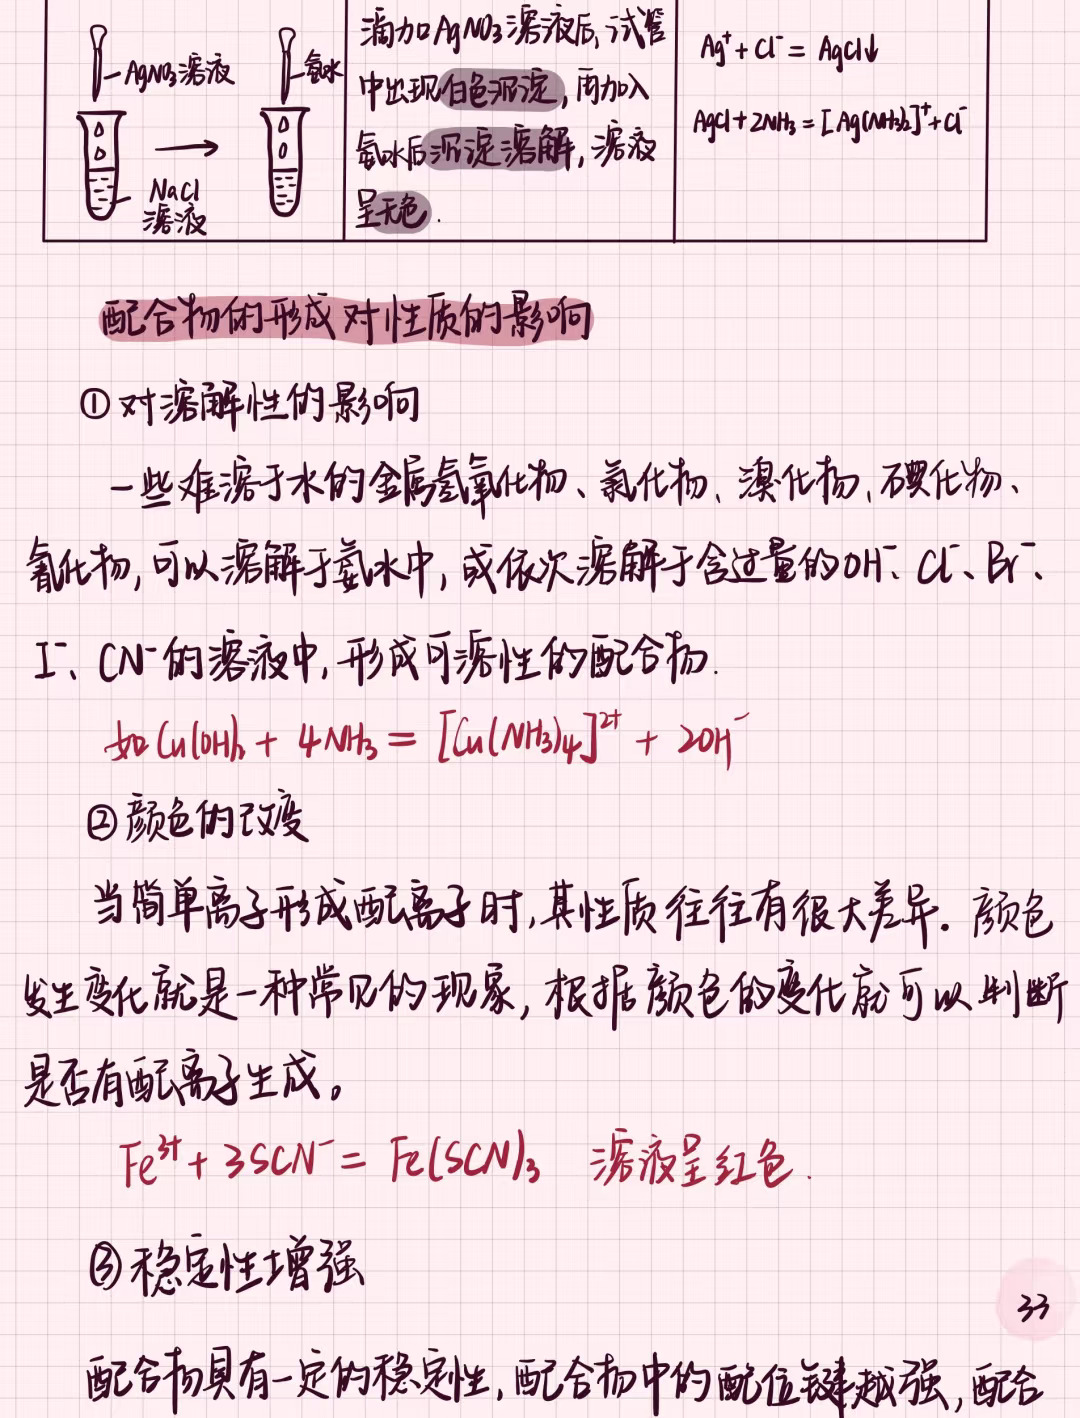 AgNO₃溶液
氨水
NaCl
溶液
滴加AgNO₃溶液后,试管
中出现白色沉淀,再加入
氨水后沉淀溶解,溶液
呈无色.
Ag⁺+Cl⁻=AgCl↓
AgCl+2NH₃=[Ag(NH₃)₂]⁺+Cl⁻
配合物的形成对性质的影响
①对溶解性的影响
一些难溶于水的金属氢氧化物、氯化物、溴化物、碘化物、
氰化物,可以溶解于氨水中,或依次溶解于含过量的OH⁻、Cl⁻、Br⁻、
I⁻、CN⁻的溶液中,形成可溶性的配合物.
如Cu(OH)₂+4NH₃=[Cu(NH₃)₄]²⁺+2OH⁻
②颜色的改变
当简单离子形成配离子时,其性质往往有很大差异.颜色
发生变化就是一种常见的现象,根据颜色的变化就可以判断
是否有配离子生成。
Fe³⁺+3SCN⁻=Fe(SCN)₃ 溶液呈红色.
③稳定性增强
33
配合物具有一定的稳定性,配合物中的配位键越强,配合